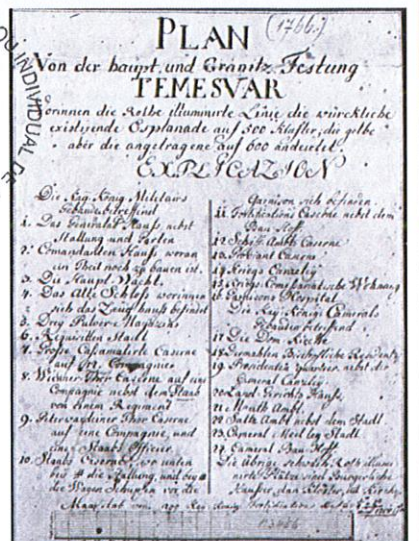 (1766.)
PLAN
Von der haupt, und Gränitz Festung
TEMESVAR
Worinnen die Rothe illuminirte Linie die würckliche
existirende Esplanade auf 500 Klafter, die gelbe
aber die angetragene auf 600 andeütet.
EXPLICAZION
Die Kay. König. Militaire
Gebäude betreffend
1. Das Generalat Hauß, nebst
Stallung und Garten
2. Comandanten Hauß woran
ein Theil noch zu bauen ist.
3. Die Haupt-Wacht.
4. Das Alte Schloß worinnen
sich das Zeüg hauß befindet
5. Drey Pulver Magazins
6. Requisiten Stadl
7. Große Cassamatirte Caserne
auf Compagnien
8. Wiener Thor Caserne auf eine
Compagnie nebst dem Staab
von einem Regiment
9. Peterwardeiner Thor Caserne
auf eine Compagnie, und
eine Staabs Officier
10. Staabs
bis # die Stallung, und bey #
der Wagen Schupfen vor die
Garnison sich befinden.
11. Fortifications Caserne nebst dem
Bau Hoff
12. Schiff Ambts Caserne
13. Proviant Casern
14. Kriegs Canzley
15. Kriegs Comissariatische Wohnung
16. Garnisons Hospital
Die Kay. Königl. Camerals
Gebäude betreffend
17. Die Dom Kirche
18. Dermahlen Bischoffliche Residentz
19. Praesidenten quartier nebst der
Cameral Canzley.
20. Land Gerichts Hauß.
21. Mauth Ambt.
22. Saltz Ambt nebst dem Stadl
23. Cameral Stadl
24. Cameral Bau Hoff
Die übrige schwach Roth illumi-
nirte Plätze seind Bürgerliche
Häußer, dan Klöster, und Kirchen